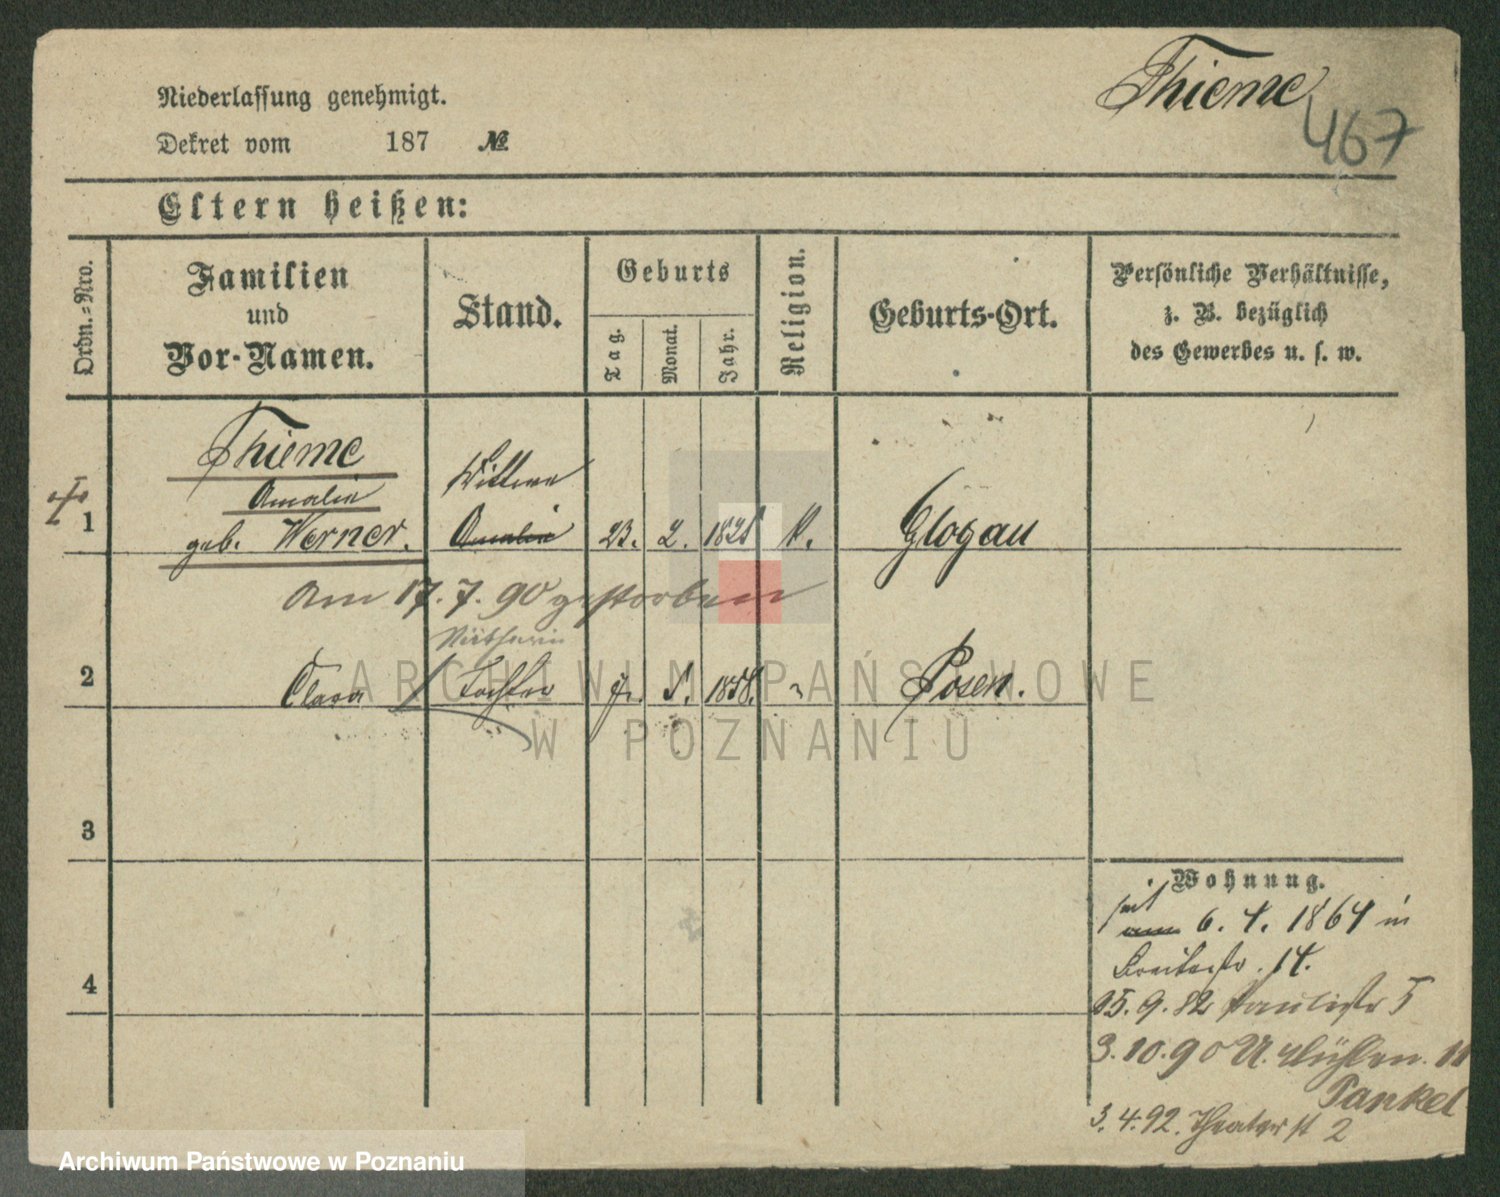 Thieme
467
Niederlassung genehmigt.
Dekret vom 187 №
Eltern heißen:
Ordn.-Nro.
Familien
und
Vor-Namen.
Stand.
Geburts
Tag.
Monat.
Jahr.
Religion.
Geburts-Ort.
Persönliche Verhältnisse,
z. B. bezüglich
des Gewerbes u. s. w.
Thieme
Amalie Wittwe
1 geb. Werner. Amalie 23. 2. 1825 K. Glogau
Am 17.7.90 gestorben
2 Clara Tochter 5. 1858. Posen.
3
4
Wohnung.
seit
am 6. 4. 1864 in
Breitestr. 14.
25.9.82 Paulistr 5
3.10.90 U. Mühlen. 11
Pankel
3.4.92. Theaterst 2
ARCHIWUM PAŃSTWOWE
W POZNANIU
Archiwum Państwowe w Poznaniu